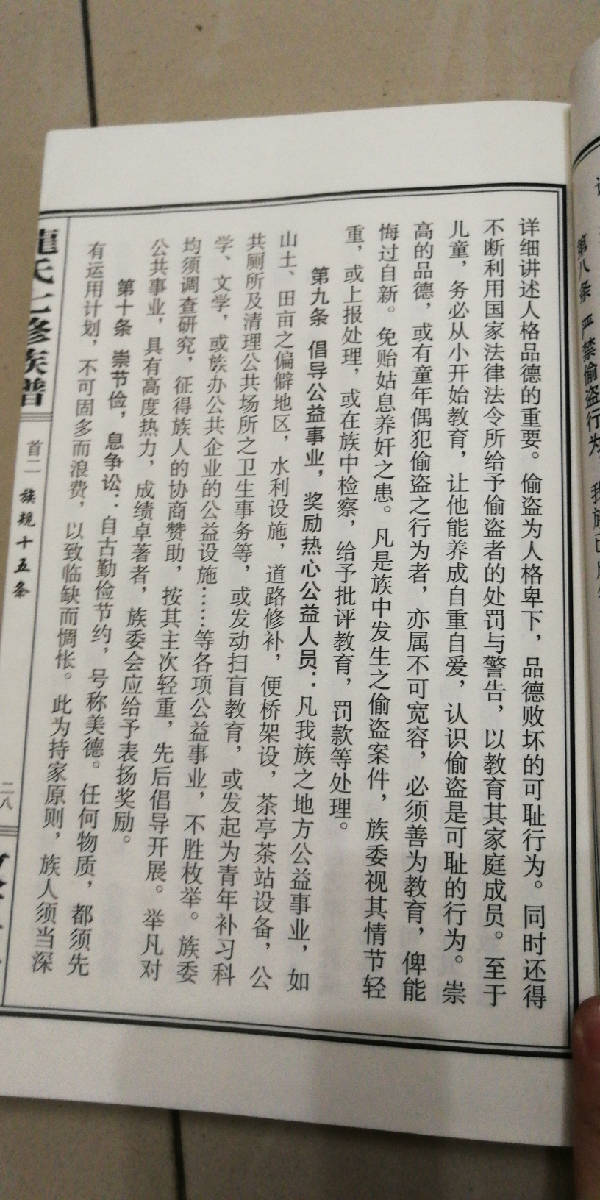 第八条 严禁偷盗行为
详细讲述人格品德的重要。偷盗为人格卑下，品德败坏的可耻行为。同时还得
不断利用国家法律法令所给予偷盗者的处罚与警告，以教育其家庭成员。至于
儿童，务必从小开始教育，让他能养成自重自爱，认识偷盗是可耻的行为。崇
高的品德，或有童年偶犯偷盗之行为者，亦属不可宽容，必须善为教育，俾能
悔过自新。免贻姑息养奸之患。凡是族中发生之偷盗案件，族委视其情节轻
重，或上报处理，或在族中检察，给予批评教育，罚款等处理。
第九条 倡导公益事业，奖励热心公益人员：凡我族之地方公益事业，如
山土、田亩之偏僻地区，水利设施，道路修补，便桥架设，茶亭茶站设备，公
共厕所及清理公共场所之卫生事务等，或发动扫盲教育，或发起为青年补习科
学、文学，或族办公共企业的公益设施……等各项公益事业，不胜枚举。族委
均须调查研究，征得族人的协商赞助，按其主次轻重，先后倡导开展。举凡对
公共事业，具有高度热力，成绩卓著者，族委会应给予表扬奖励。
第十条 崇节俭，息争讼：自古勤俭节约，号称美德。任何物质，都须先
有运用计划，不可固多而浪费，以致临缺而惆怅。此为持家原则，族人须当深
氏七修族谱
首二 族规十五条
二八